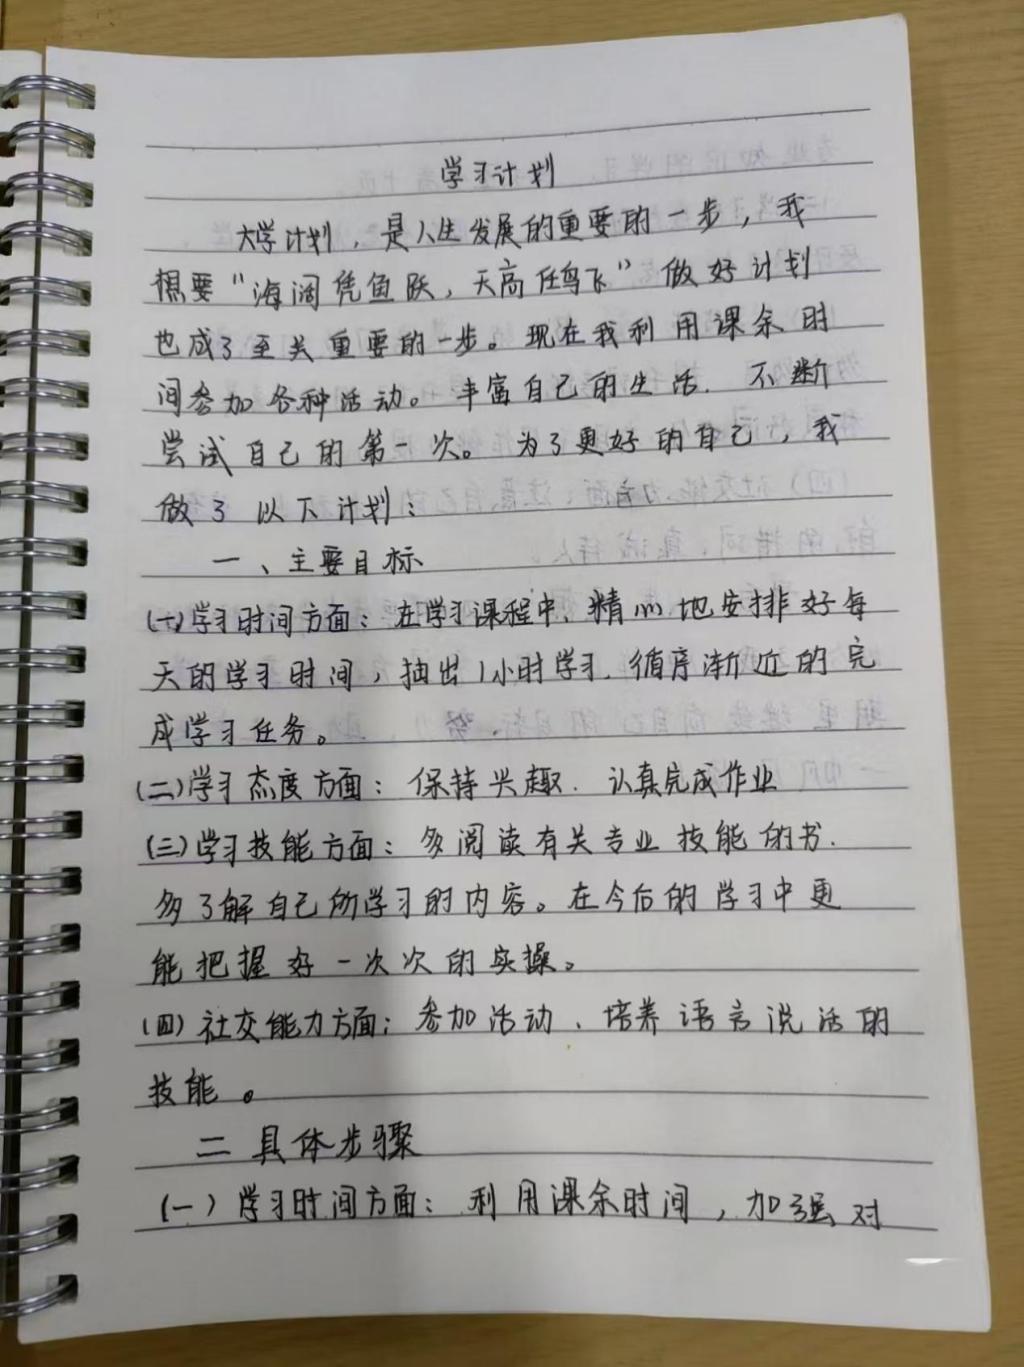 学习计划
大学计划，是人生发展的重要的一步，我
想要“海阔凭鱼跃，天高任鸟飞”做好计划
也成了至关重要的一步。现在我利用课余时
间参加各种活动。丰富自己的生活.不断
尝试自己的第一次。为了更好的自己，我
做了以下计划：
一、主要目标
(一)学习时间方面：在学习课程中、精心地安排好每
天的学习时间，抽出1小时学习.循序渐近的完
成学习任务。
(二)学习态度方面：保持兴趣.认真完成作业
(三)学习技能方面：多阅读有关专业技能的书.
多了解自己所学习的内容。在今后的学习中更
能把握好一次次的实操。
(四)社交能力方面：参加活动、培养语言说活的
技能。
二 具体步骤
(一)学习时间方面：利用课余时间，加强对